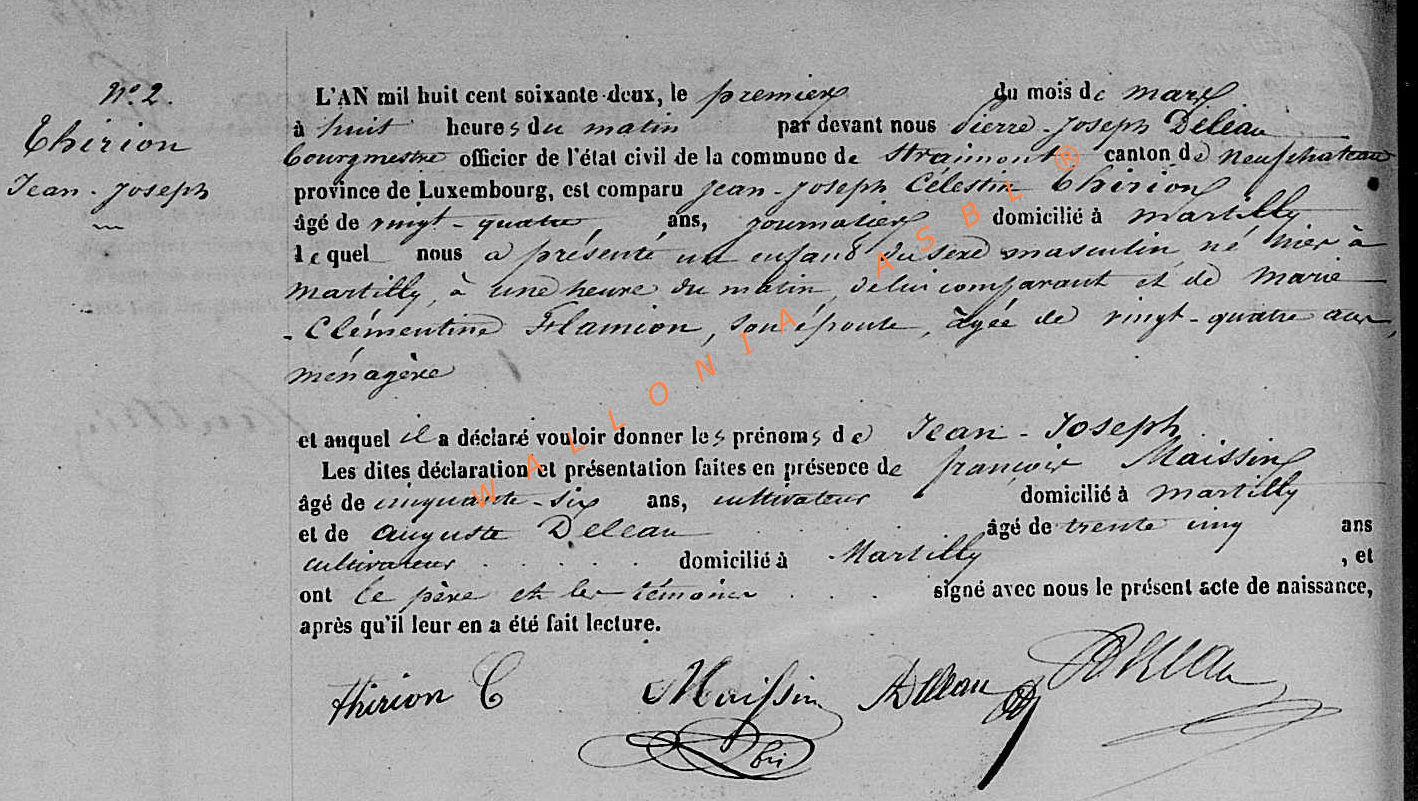 N° 2.
Thirion
Jean-Joseph
L'AN mil huit cent soixante-deux, le premier du mois de mars
à huit heures du matin par devant nous Pierre-Joseph Deleau
bourgmestre officier de l'état civil de la commune de Straimont canton de Neufchateau
province de Luxembourg, est comparu Jean-Joseph Célestin Thirion
âgé de vingt-quatre ans, journalier domicilié à Martilly
lequel nous a présenté un enfant du sexe masculin, né hier à
Martilly, à une heure du matin, de lui comparant et de Marie
-Clémentine Flamion, son épouse, âgée de vingt-quatre ans,
ménagère
et auquel il a déclaré vouloir donner les prénoms de Jean-Joseph
Les dites déclaration et présentation faites en présence de françois Maissin
âgé de cinquante-six ans, cultivateur domicilié à Martilly
et de Auguste Deleau âgé de trente cinq ans
cultivateur . . . . . domicilié à Martilly , et
ont le père et les témoins . . . signé avec nous le présent acte de naissance,
après qu'il leur en a été fait lecture.
Thirion C Maissin ADeleau Deleau
WALLONIA ASBL ®